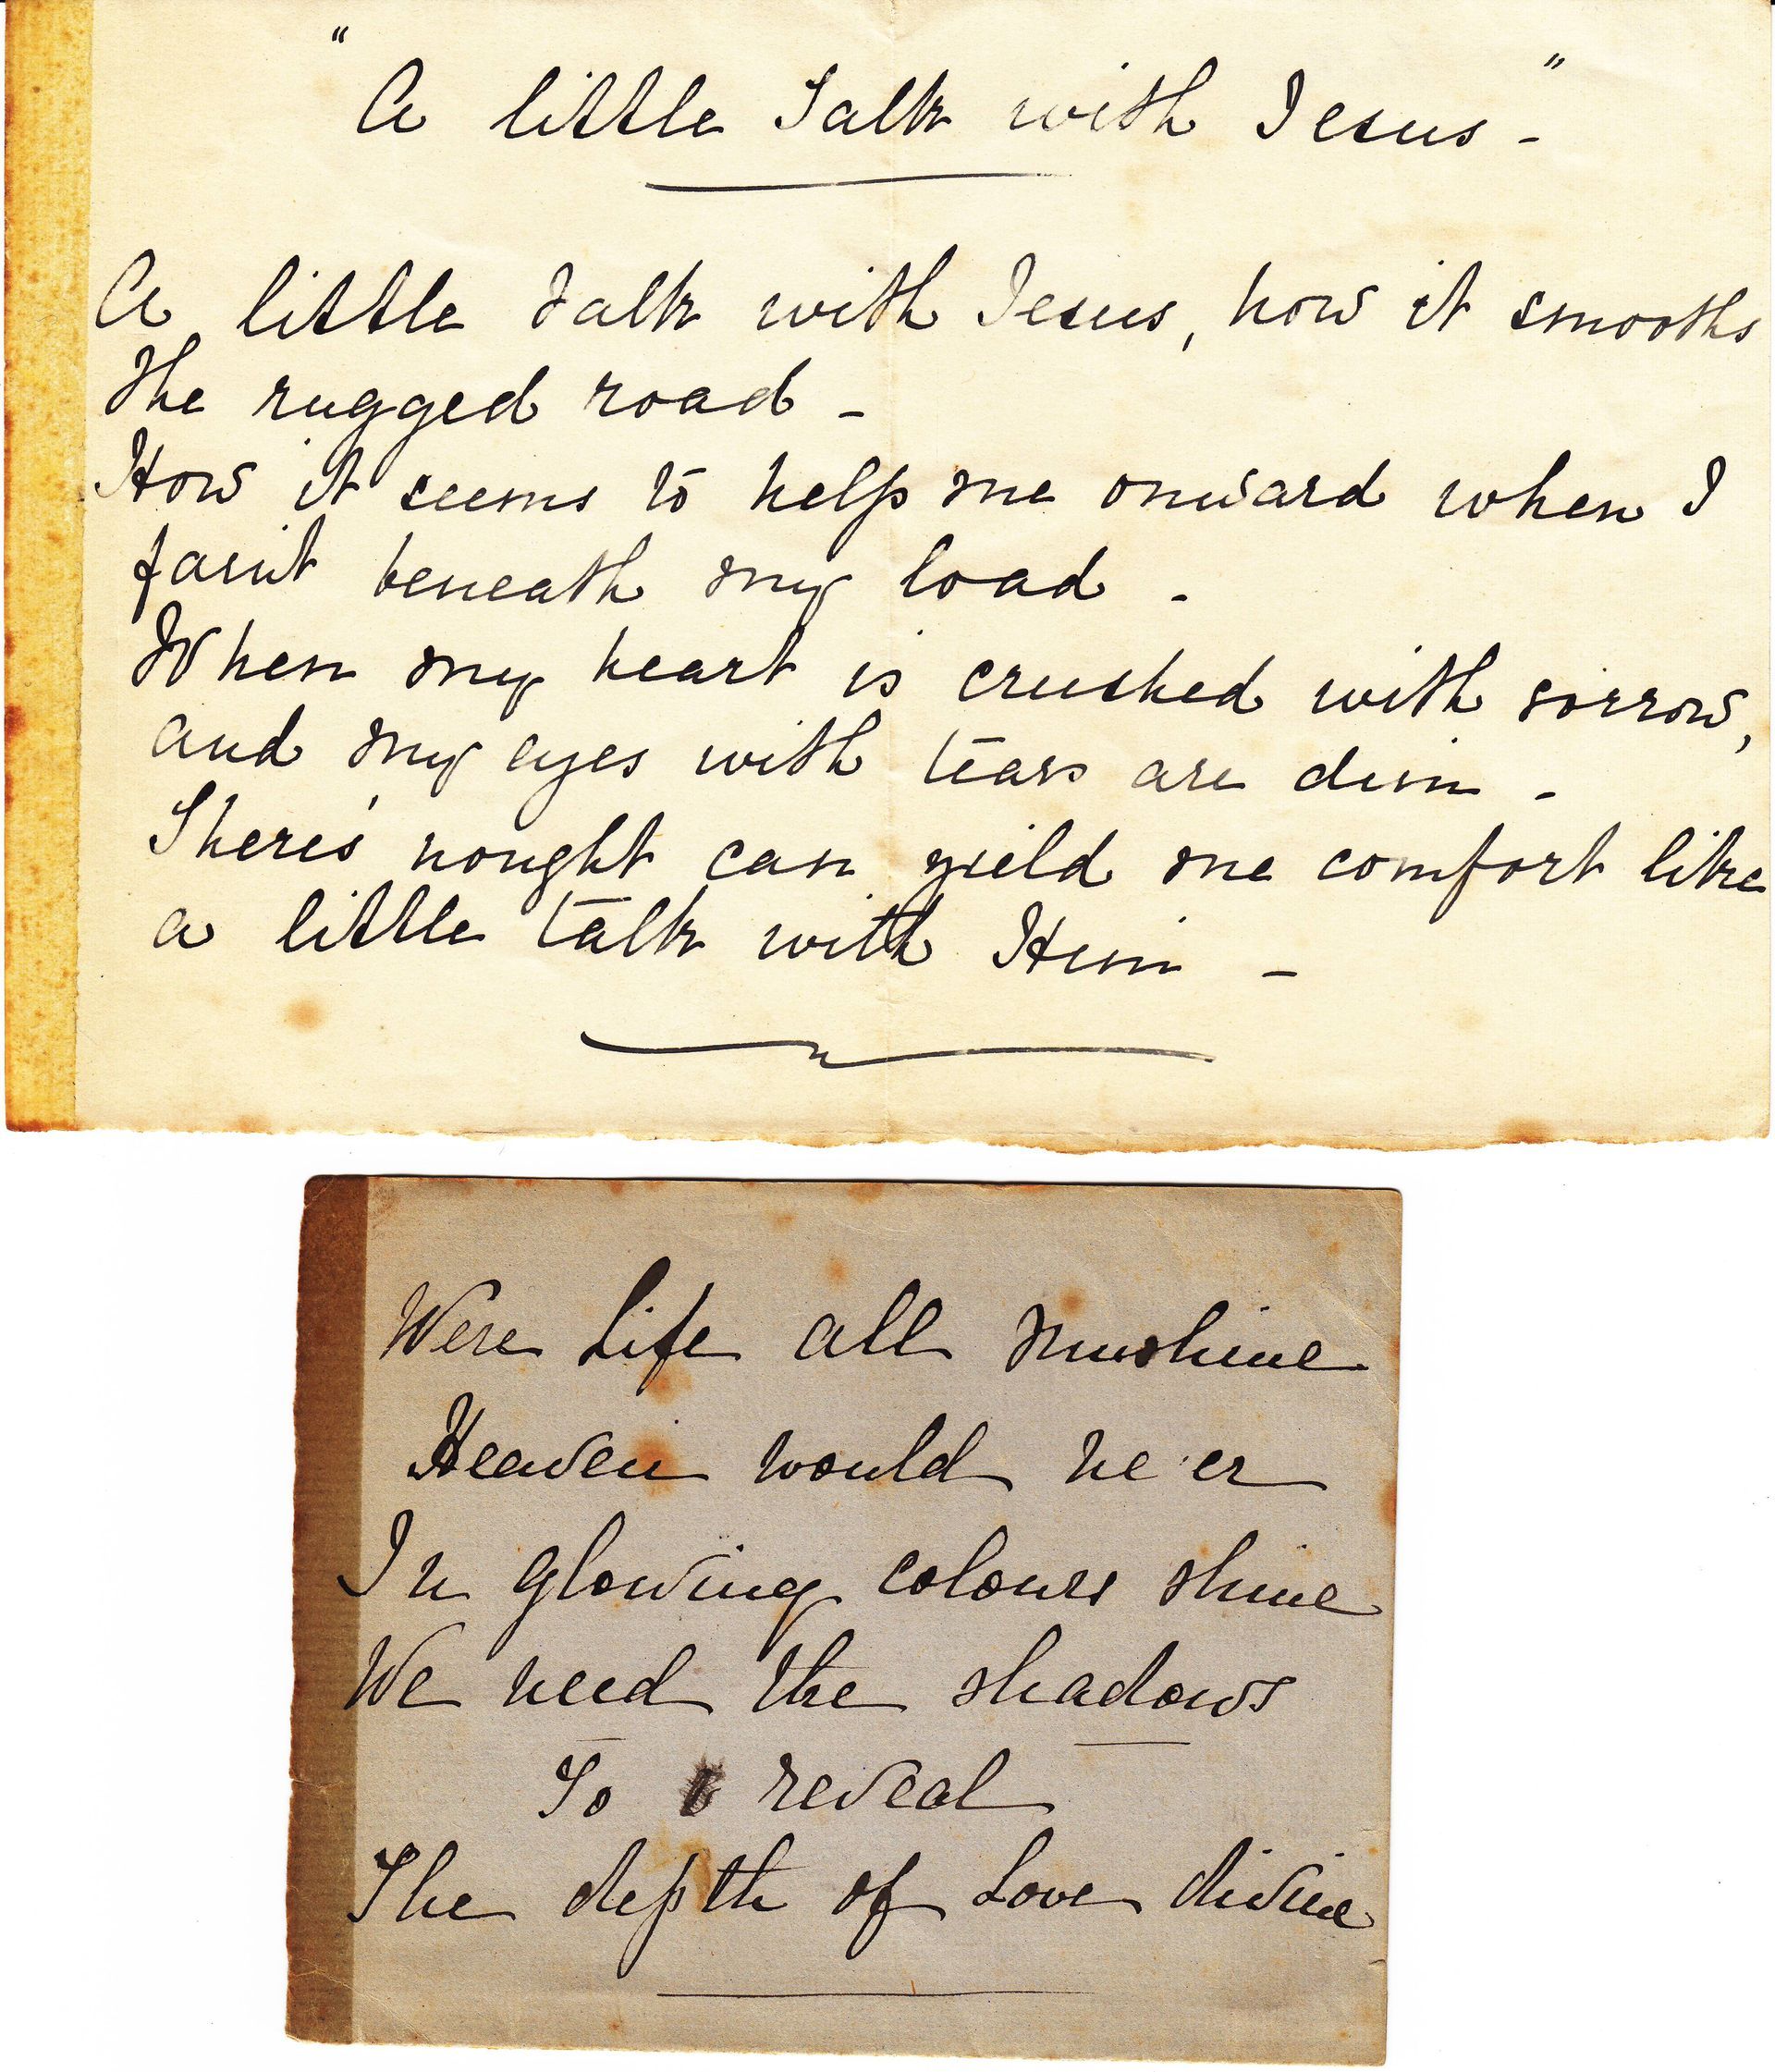 "A little Talk with Jesus -"
A little talk with Jesus, how it smooths
the rugged road -
How it seems to help me onward when I
faint beneath my load -
When my heart is crushed with sorrow,
and my eyes with tears are dim -
There's nought can yield me comfort like
a little talk with Him -
Were Life all sunshine
Heaven would ne'er
In glowing colours shine
We need the shadows
To reveal
The depth of Love divine